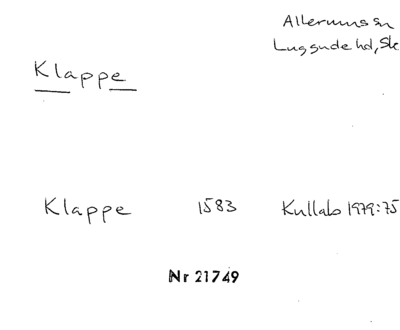 Allerums sn
Luggude hd, Sk
Klappe
Klappe 1583 Kullab 1979:75
Nr 21749